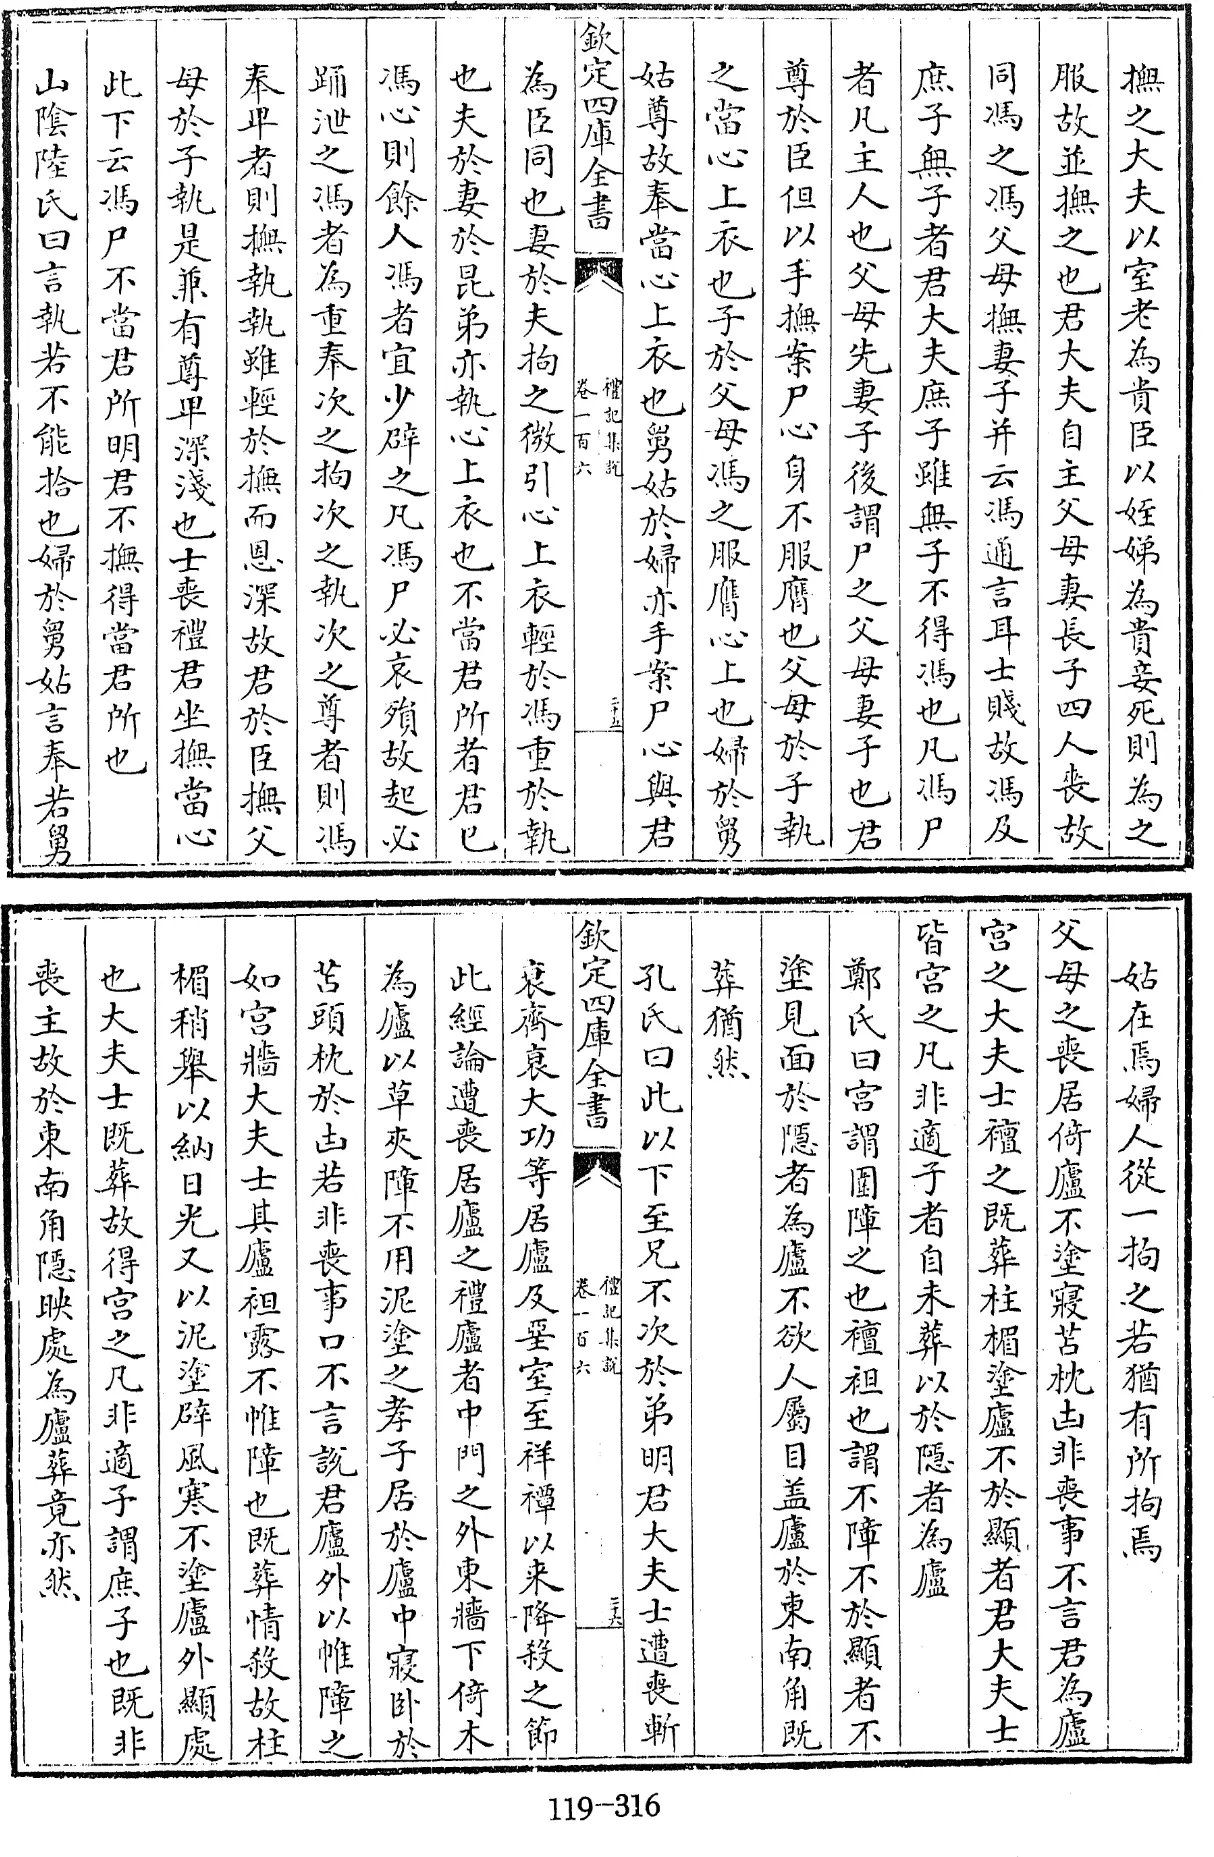 撫之大夫以室老為貴臣以姪娣為貴妾死則為之
服故並撫之也君大夫自主父母妻長子四人喪故
同馮之馮父母撫妻子并云馮通言耳士賤故馮及
庶子無子者君大夫庶子雖無子不得馮也凡馮尸
者凡主人也父母先妻子後謂尸之父母妻子也君
尊於臣但以手撫案尸心身不服膺也父母於子執
之當心上衣也子於父母馮之服膺心上也婦於舅
姑尊故奉當心上衣也舅姑於婦亦手案尸心與君
欽定四庫全書
禮記集說
卷一百六
二十五
為臣同也妻於夫拘之微引心上衣輕於馮重於執
也夫於妻於昆弟亦執心上衣也不當君所者君已
馮心則餘人馮者宜少辟之凡馮尸必哀殞故起必
踊泄之馮者為重奉次之拘次之執次之尊者則馮
奉卑者則撫執執雖輕於撫而恩深故君於臣撫父
母於子執是兼有尊卑深淺也士喪禮君坐撫當心
此下云馮尸不當君所明君不撫得當君所也
山陰陸氏曰言執若不能拾也婦於舅姑言奉若舅
姑在焉婦人從一拘之若猶有所拘焉
父母之喪居倚廬不塗寢苫枕凷非喪事不言君為廬
宮之大夫士襢之既葬柱楣塗廬不於顯者君大夫士
皆宮之凡非適子者自未葬以於隱者為廬
鄭氏曰宮謂圍障之也襢袒也謂不障不於顯者不
塗見面於隱者為廬不欲人屬目盖廬於東南角既
葬猶然
孔氏曰此以下至兄不次於弟明君大夫士遭喪斬
欽定四庫全書
禮記集說
卷一百六
三六
衰齊衰大功等居廬及堊室至祥禫以来降殺之節
此經論遭喪居廬之禮廬者中門之外東牆下倚木
為廬以草夾障不用泥塗之孝子居於廬中寢卧於
苫頭枕於凷若非喪事口不言說君廬外以帷障之
如宮牆大夫士其廬袒露不帷障也既葬情殺故柱
楣稍舉以納日光又以泥塗辟風寒不塗廬外顯處
也大夫士既葬故得宮之凡非適子謂庶子也既非
喪主故於東南角隱映處為廬葬竟亦然
119-316